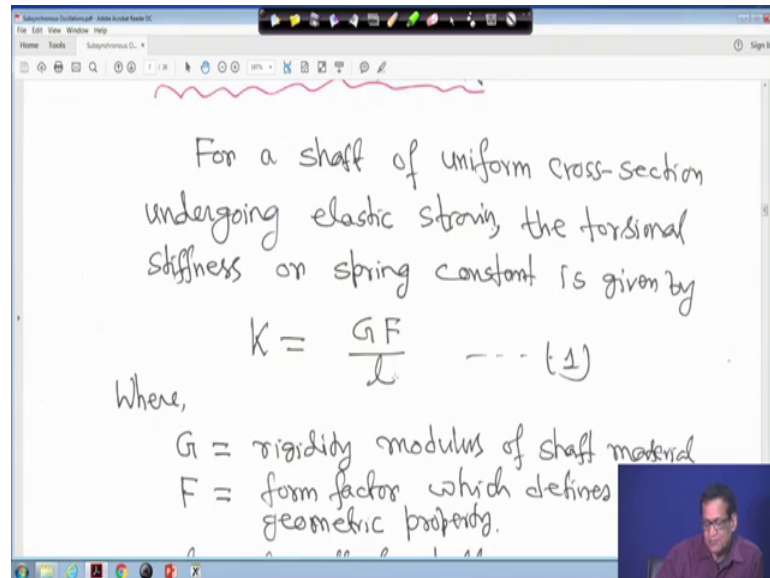 Subsynchronous Oscillations.pdf - Adobe Acrobat Reader DC
File Edit View Window Help
Home Tools Subsynchronous O... ×
Sign In
For a shaft of uniform cross-section
undergoing elastic strain, the torsional
stiffness or spring constant is given by
K = GF/l ---- (1)
Where,
G = rigidity modulus of shaft material
F = form factor which defines
geometric property.